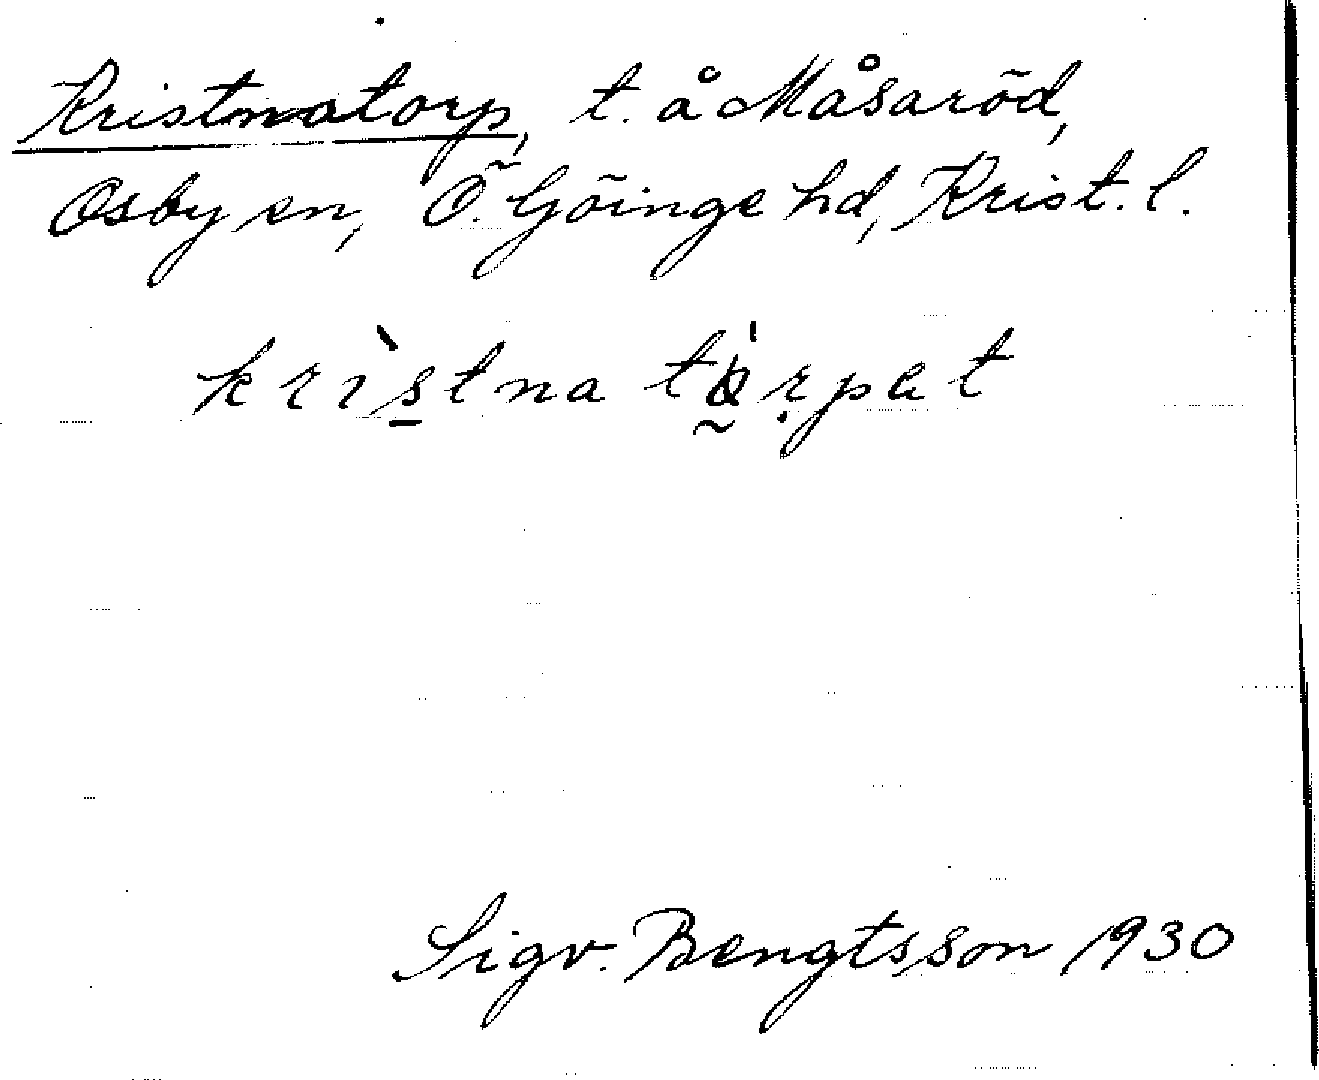 Kristnatorp, t. å Måsaröd,
Osby sn, Ö. Göinge hd, Krist. l.
kristna torpet
Sigv. Bengtsson 1930